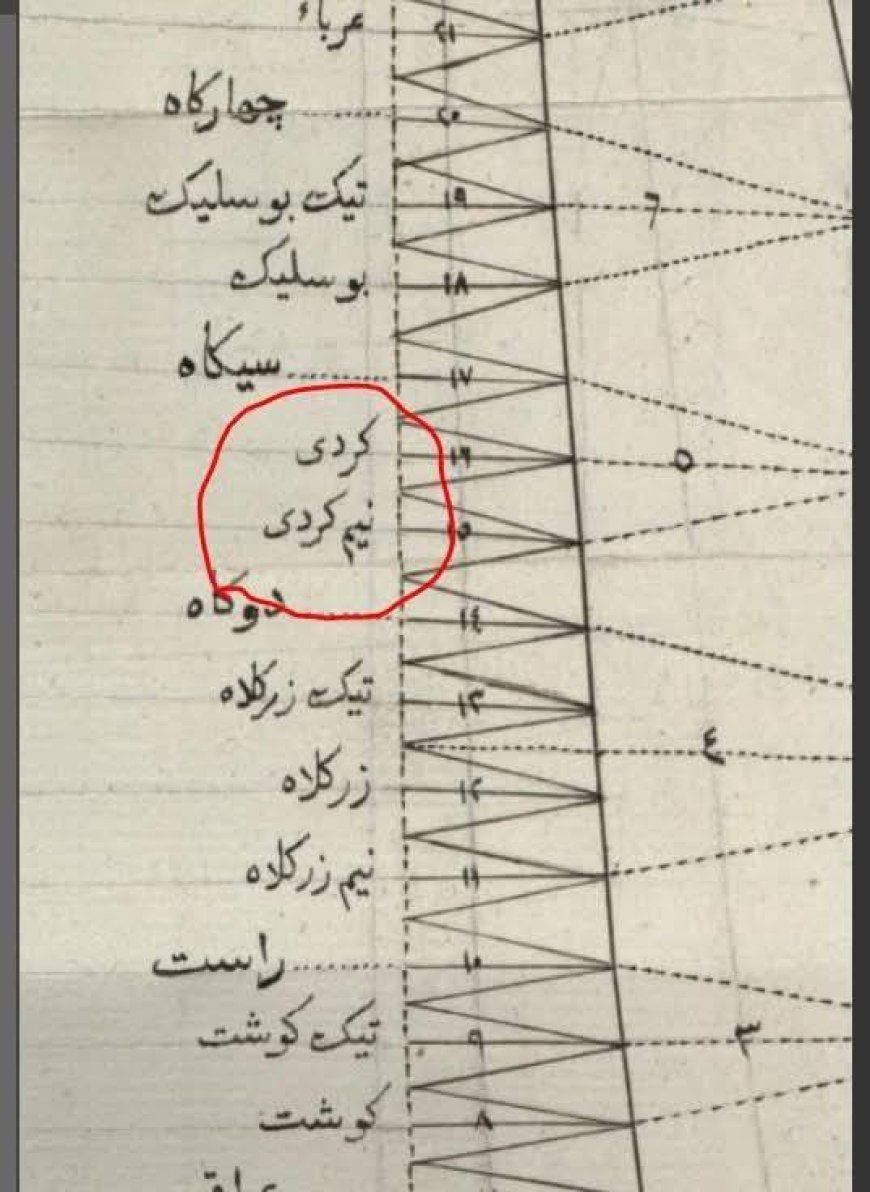 عرباء ٢١
چهارکاه ٢٠
تیک بوسلیک ١٩ ٦
بوسلیک ١٨
سیکاه ١٧
کردی ١٦ ٥
نیم کردی ١٥
دوکاه ١٤
تیک زرکلاه ١٣ ٤
زرکلاه ١٢
نیم زرکلاه ١١
راست ١٠
تیک کوشت ٩ ٣
کوشت ٨